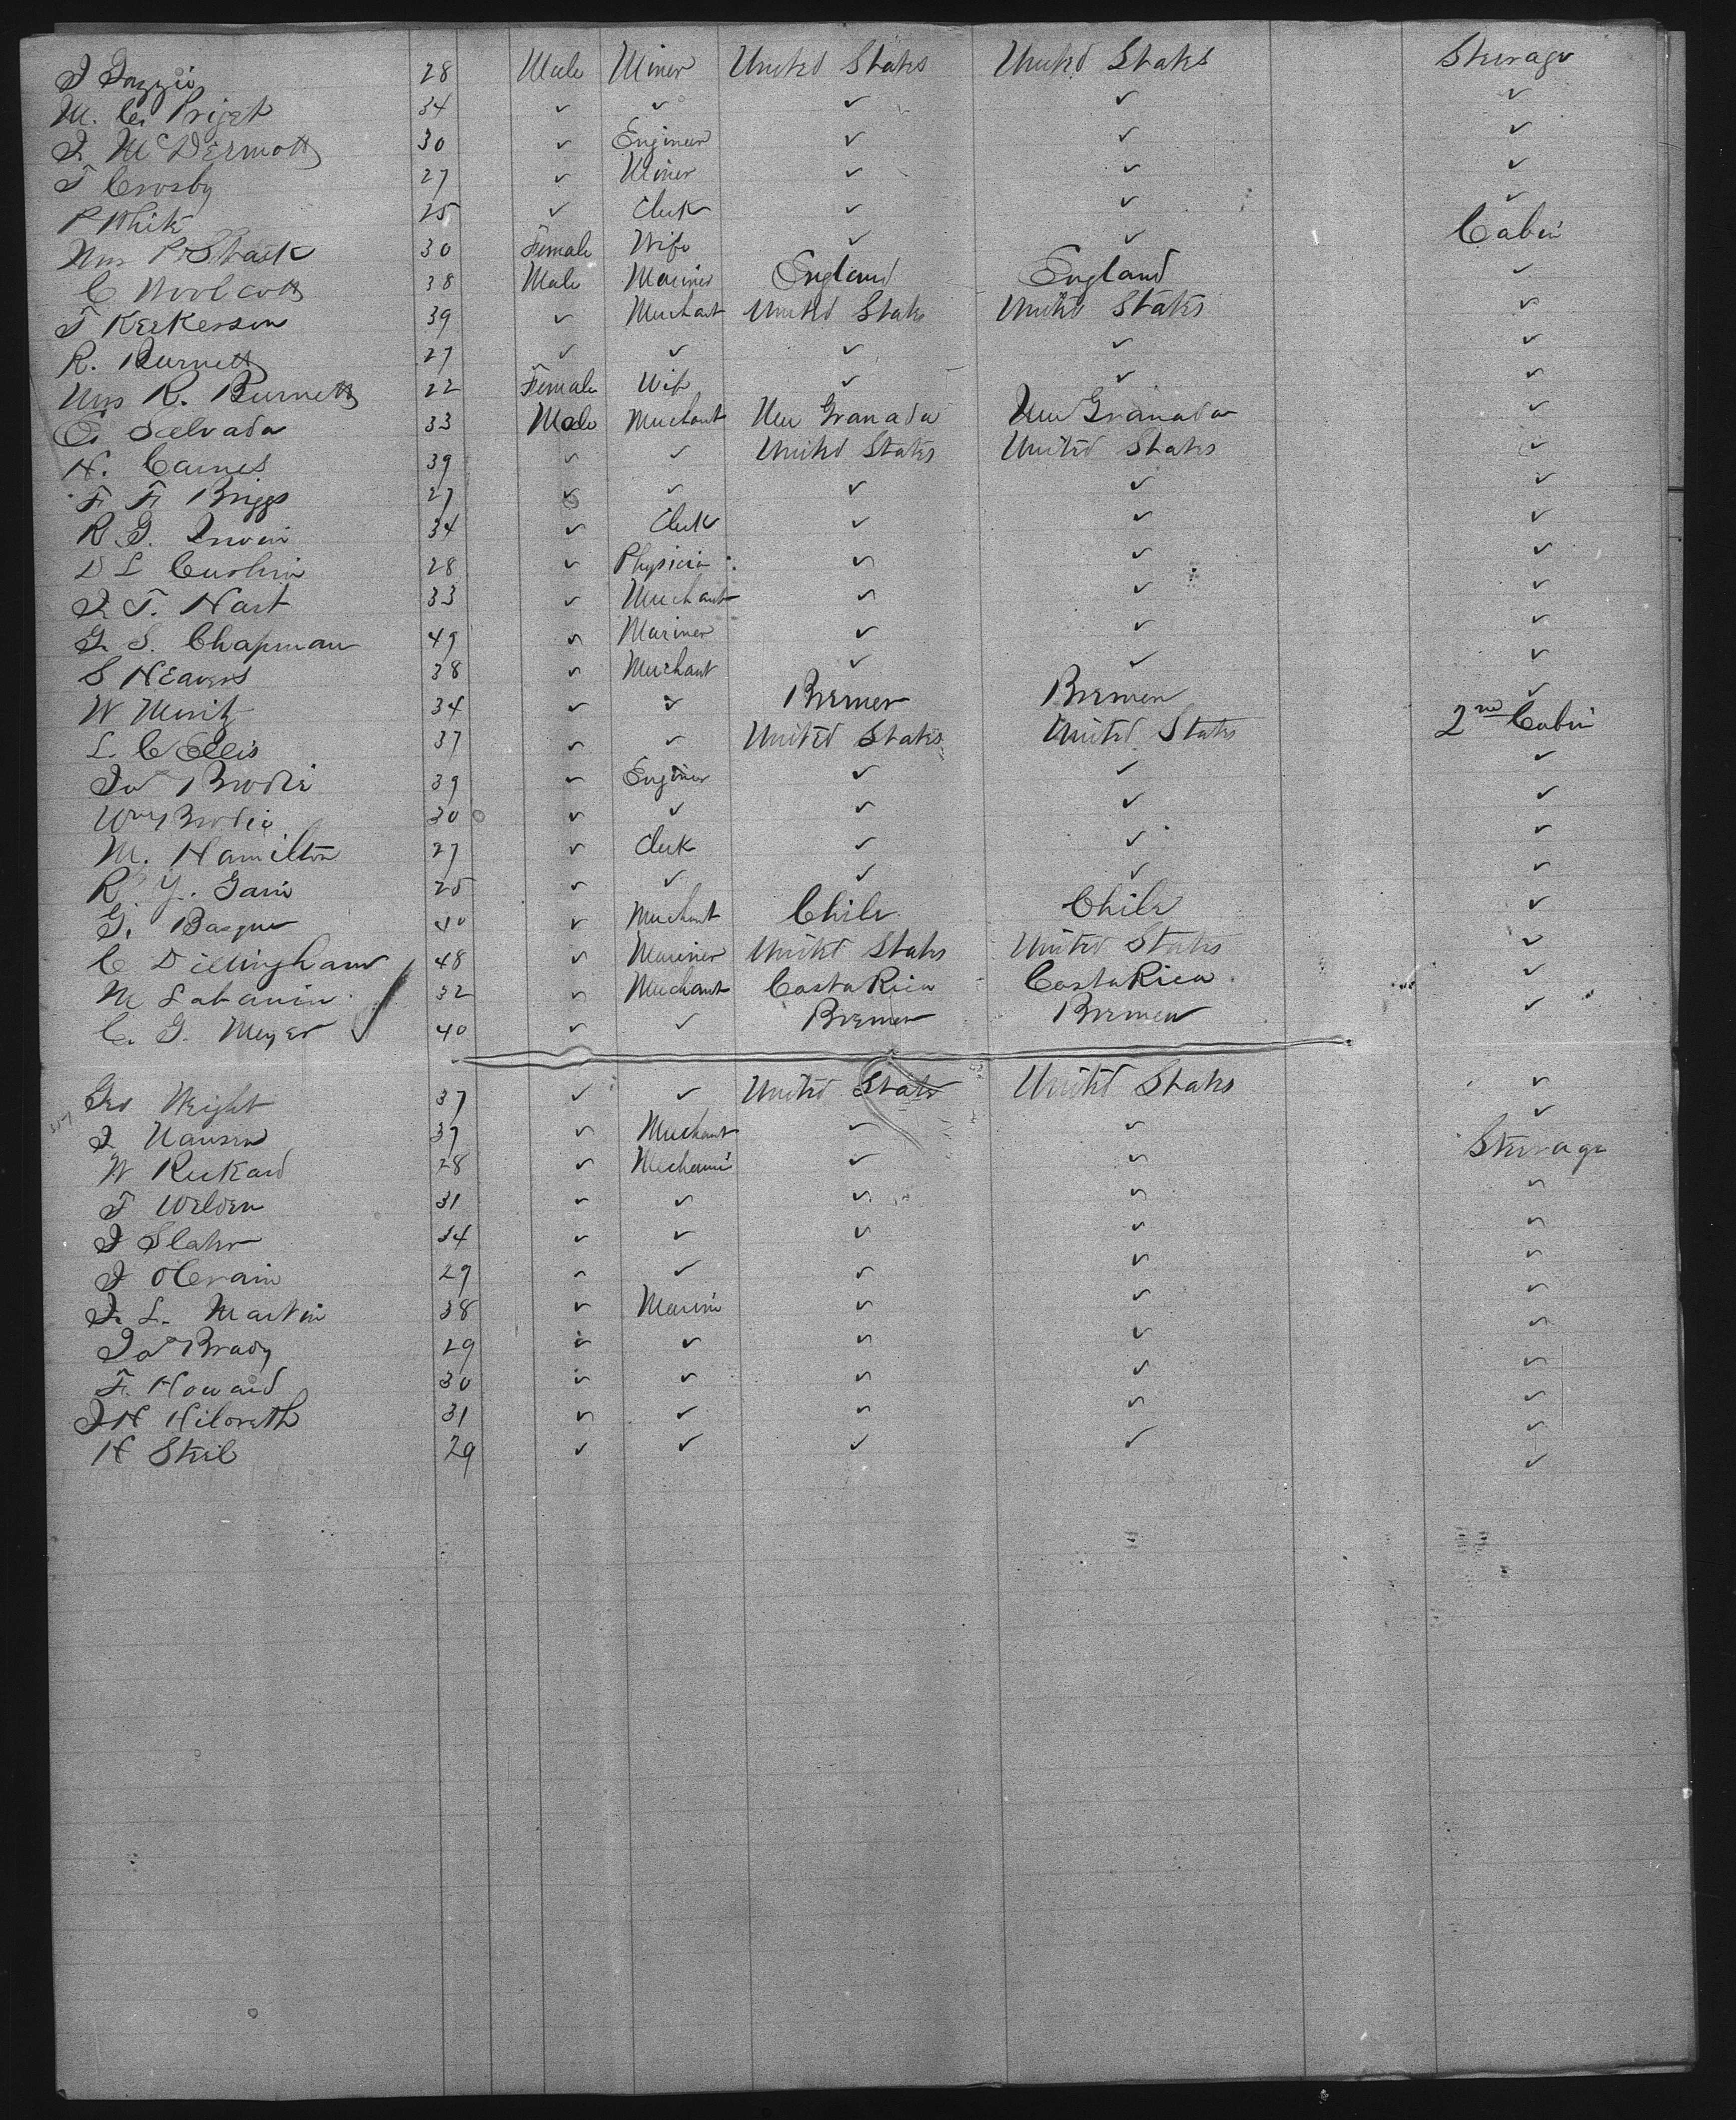 J 28 Male Miner United States United States Steerage
M. C. 34 ✓ ✓ ✓ ✓ ✓
J. McDermott 30 ✓ Engineer ✓ ✓ ✓
T Crosby 27 ✓ Miner ✓ ✓ ✓
P White 25 ✓ Clerk ✓ ✓ ✓
Mrs P 30 Female Wife ✓ ✓ Cabin
C Woolcott 38 Male Mariner England England ✓
T Kerkerson 39 ✓ Merchant United States United States ✓
R. Burnett 27 ✓ ✓ ✓ ✓ ✓
Mrs R. Burnett 22 Female Wife ✓ ✓ ✓
Salvada 33 Male Merchant New Granada New Granada ✓
H. Carnes 39 ✓ ✓ United States United States ✓
F. F. Briggs 27 ✓ ✓ ✓ ✓ ✓
R. G. Irwin 34 ✓ Clerk ✓ ✓ ✓
D L Cushin 28 ✓ Physician ✓ ✓ ✓
J. T. Hart 33 ✓ Merchant ✓ ✓ ✓
G. S. Chapman 49 ✓ Mariner ✓ ✓ ✓
S Heavens 38 ✓ Merchant ✓ ✓ ✓
W Muritz 34 ✓ ✓ Bremen Bremen ✓
L. C Ellis 37 ✓ ✓ United States United States 2nd Cabin
Jas Brodie 39 ✓ Engineer ✓ ✓ ✓
Wm Brodie 30 ✓ ✓ ✓ ✓ ✓
M. Hamilton 27 ✓ Clerk ✓ ✓ ✓
R Y. Gain 25 ✓ ✓ ✓ ✓ ✓
G. Basque 40 ✓ Merchant Chile Chile ✓
C Dillingham 48 ✓ Mariner United States United States ✓
M Labanin 32 ✓ Merchant Costa Rica Costa Rica ✓
C. G. Meyer 40 ✓ ✓ Bremen Bremen ✓
Geo Wright 37 ✓ ✓ United States United States ✓
J Hansen 37 ✓ Merchant ✓ ✓ ✓
W Rickard 28 ✓ Mechanic ✓ ✓ Steerage
T Welden 31 ✓ ✓ ✓ ✓ ✓
J Slater 34 ✓ ✓ ✓ ✓ ✓
J 29 ✓ ✓ ✓ ✓ ✓
J. L. Martin 38 ✓ ✓ ✓ ✓
Jas Brady 29 ✓ ✓ ✓ ✓ ✓
F. Howard 30 ✓ ✓ ✓ ✓ ✓
J H Hildreth 31 ✓ ✓ ✓ ✓ ✓
H Steil 29 ✓ ✓ ✓ ✓ ✓